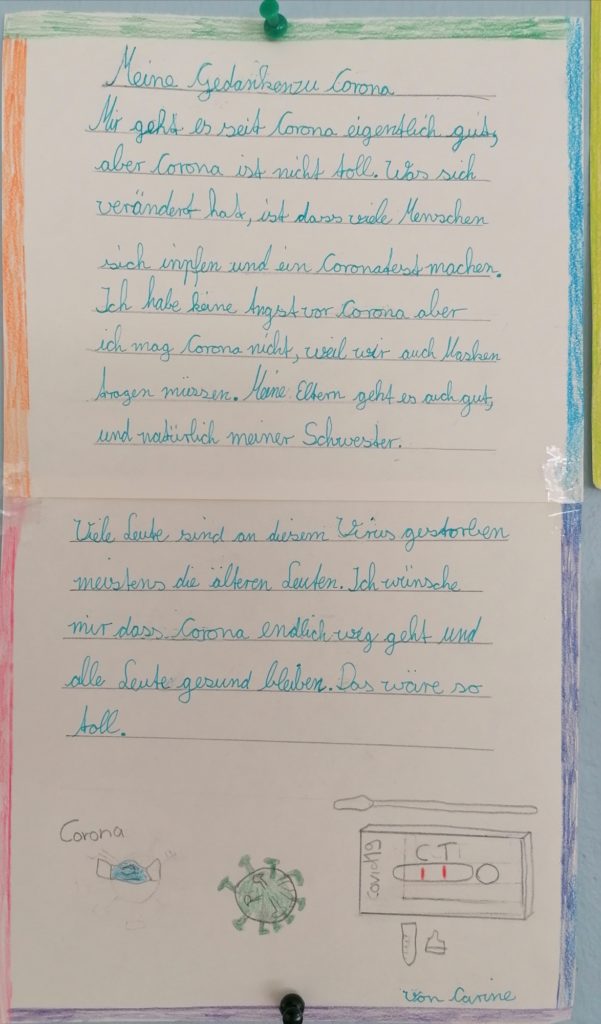 Meine Gedankenzu Corona
Mir geht es seit Corona eigentlich gut,
aber Corona ist nicht toll. Was sich
verändert hat, ist dass viele Menschen
sich inpfen und ein Coronatest machen.
Ich habe keine Angst vor Corona aber
ich mag Corona nicht, weil wir auch Masken
tragen müssen. Meine Eltern geht es auch gut,
und natürlich meiner Schwester.
Viele Leute sind an diesem Virus gestorben
meistens die älteren Leuten. Ich wünsche
mir dass Corona endlich weg geht und
alle Leute gesund bleiben. Das wäre so
toll.
Corona
covid19
C T
von Carine